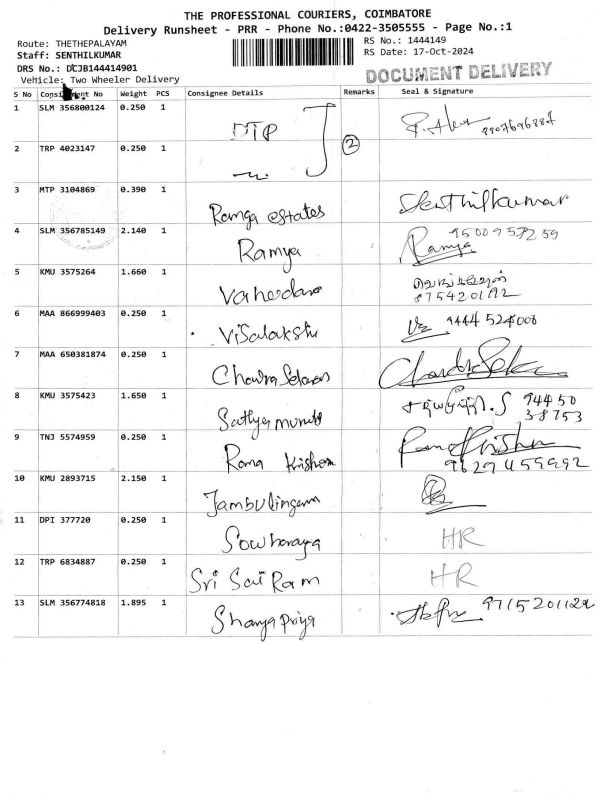 THE PROFESSIONAL COURIERS, COIMBATORE
Delivery Runsheet - PRR - Phone No.:0422-3505555 - Page No.:1
Route: THETHEPALAYAM
RS No.: 1444149
Staff: SENTHILKUMAR
RS Date: 17-Oct-2024
DRS No.: DCJB144414901
DOCUMENT DELIVERY
Vehicle: Two Wheeler Delivery
S No Consignment No Weight PCS Consignee Details Remarks Seal & Signature
1 SLM 356800124 0.250 1 DTP
2 TRP 4023147 0.250 1 2
3 MTP 3104869 0.390 1 Ramya estates Senthilkumar
4 SLM 356785149 2.140 1 Ramya Ramya 9500957259
5 KMU 3575264 1.660 1 8754201192
6 MAA 866999403 0.250 1 Visalakshi 9444524008
7 MAA 650381874 0.250 1
8 KMU 3575423 1.650 1 94450
38753
9 TNJ 5574959 0.250 1 Rama Krishnan
9629459992
10 KMU 2893715 2.150 1 Jambulingam
11 DPI 377720 0.250 1 HR
12 TRP 6834887 0.250 1 Sri Sai Ram HR
13 SLM 356774818 1.895 1 Sharyapriya